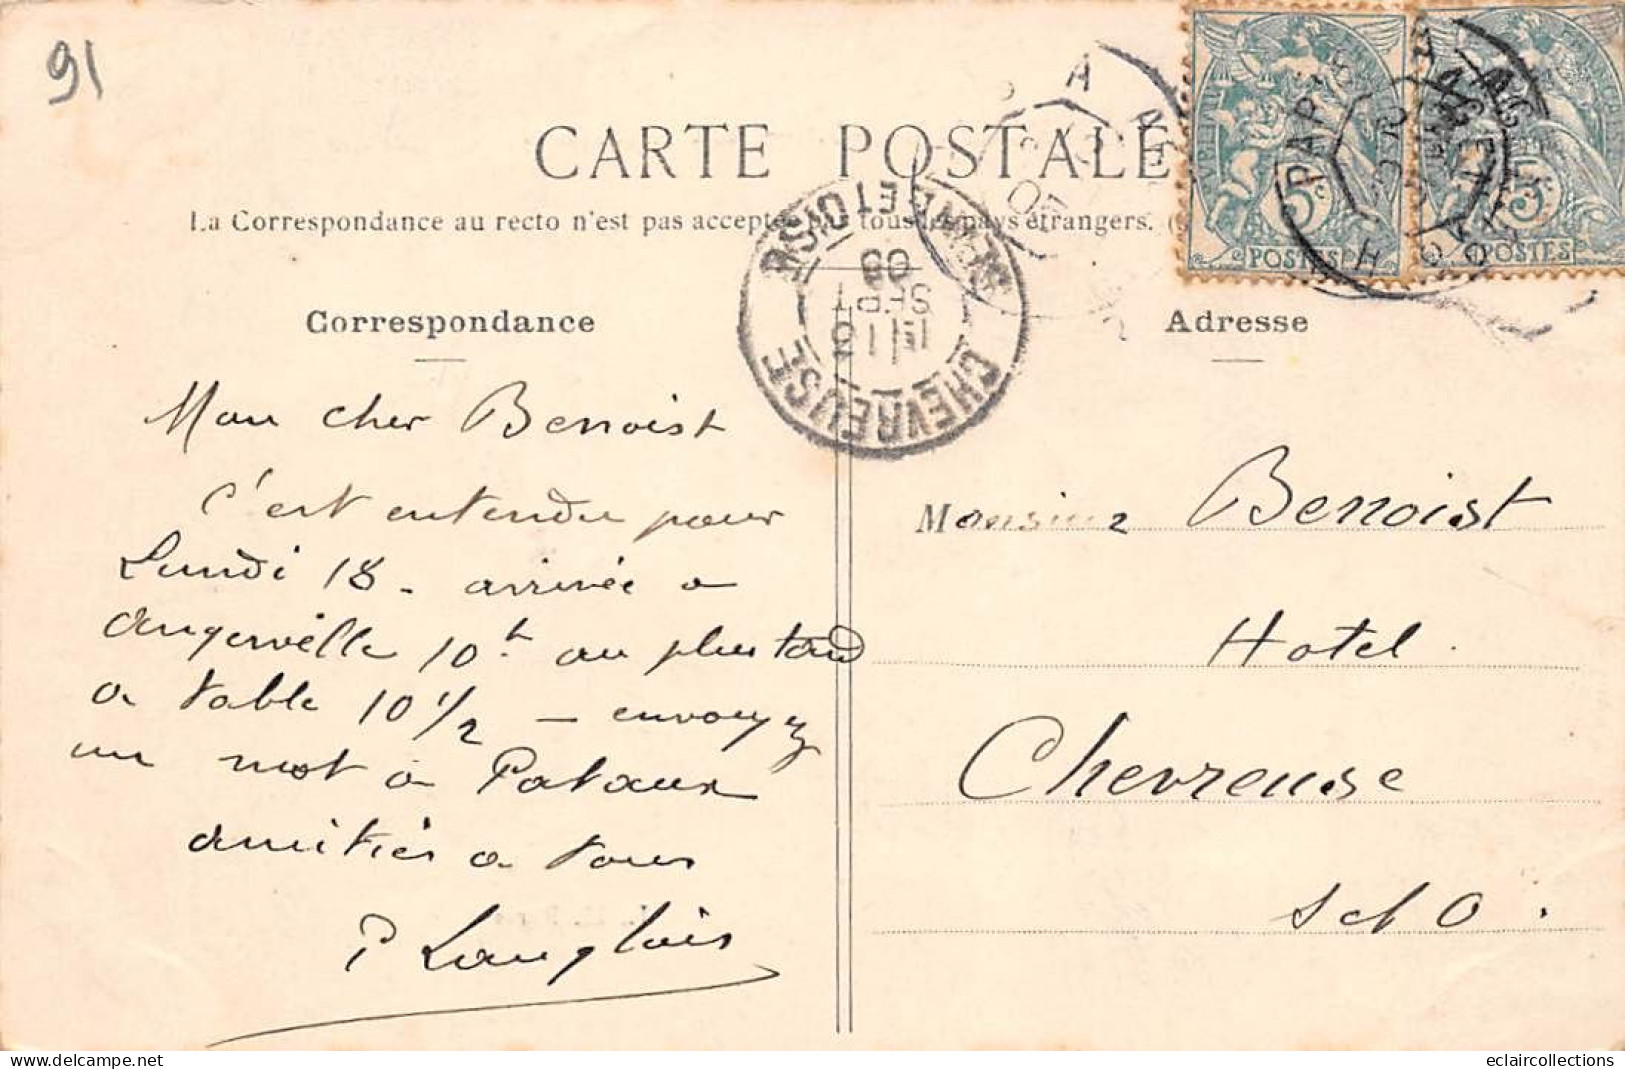 91
CARTE POSTALE
La Correspondance au recto n'est pas acceptée par tous les pays étrangers.
Correspondance
Adresse
CHEVREUSE
SEINE ET OISE
SEPT
POSTES
POSTES
Mon cher Benoist
c'est entendu pour
Lundi 18 - arrivée a
angerville 10h au plus tard
a table 10 1/2 - envoyez
un mot a Pataux
amitiés a tous
P Langlois
Monsieur Benoist
Hotel
Chevreuse
S et O.
eclaircollections